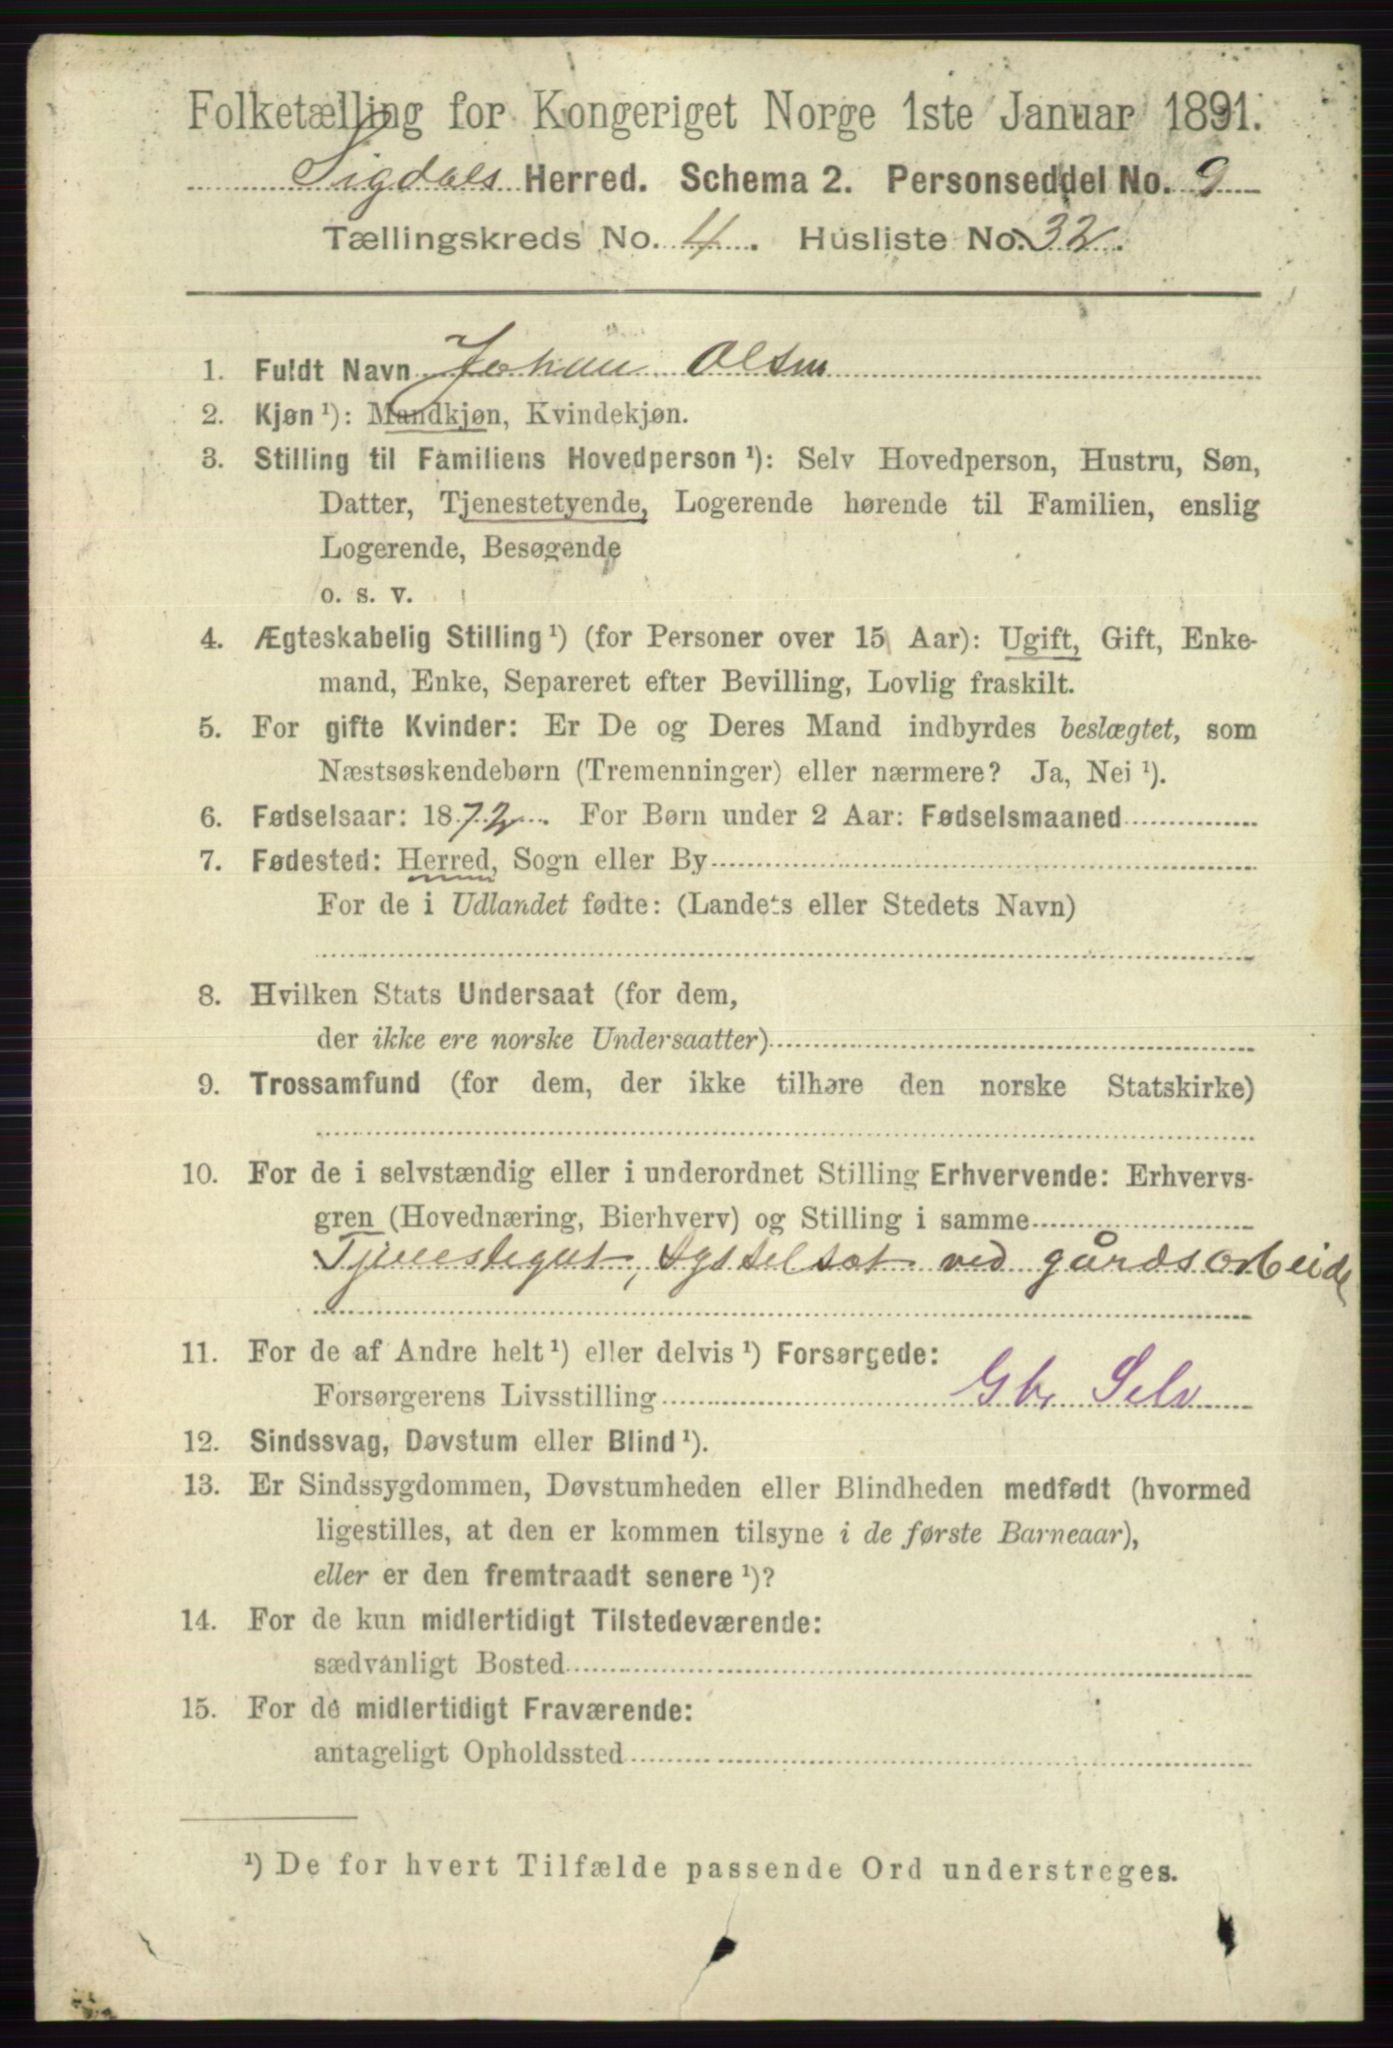 Folketælling for Kongeriget Norge 1ste Januar 1891.
Sigdals Herred. Schema 2. Personseddel No. 9
Tællingskreds No. 4. Husliste No. 32.
1. Fuldt Navn Johan Olsen
2. Kjøn ¹): Mandkjøn, Kvindekjøn.
3. Stilling til Familiens Hovedperson ¹): Selv Hovedperson, Hustru, Søn,
Datter, Tjenestetyende, Logerende hørende til Familien, enslig
Logerende, Besøgende
o. s. v.
4. Ægteskabelig Stilling ¹) (for Personer over 15 Aar): Ugift, Gift, Enke-
mand, Enke, Separeret efter Bevilling, Lovlig fraskilt.
5. For gifte Kvinder: Er De og Deres Mand indbyrdes beslægtet, som
Næstsøskendebørn (Tremenninger) eller nærmere? Ja, Nei ¹).
6. Fødselsaar: 1872. For Børn under 2 Aar: Fødselsmaaned
7. Fødested: Herred, Sogn eller By
For de i Udlandet fødte: (Landets eller Stedets Navn)
8. Hvilken Stats Undersaat (for dem,
der ikke ere norske Undersaatter)
9. Trossamfund (for dem, der ikke tilhøre den norske Statskirke)
10. For de i selvstændig eller i underordnet Stilling Erhvervende: Erhvervs-
gren (Hovednæring, Bierhverv) og Stilling i samme
Tjenestegut, sysselsat ved gårdsarbeide
11. For de af Andre helt ¹) eller delvis ¹) Forsørgede:
Forsørgerens Livsstilling Gbr Selv
12. Sindssvag, Døvstum eller Blind ¹).
13. Er Sindssygdommen, Døvstumheden eller Blindheden medfødt (hvormed
ligestilles, at den er kommen tilsyne i de første Barneaar),
eller er den fremtraadt senere ¹)?
14. For de kun midlertidigt Tilstedeværende:
sædvanligt Bosted
15. For de midlertidigt Fraværende:
antageligt Opholdssted
¹) De for hvert Tilfælde passende Ord understreges.